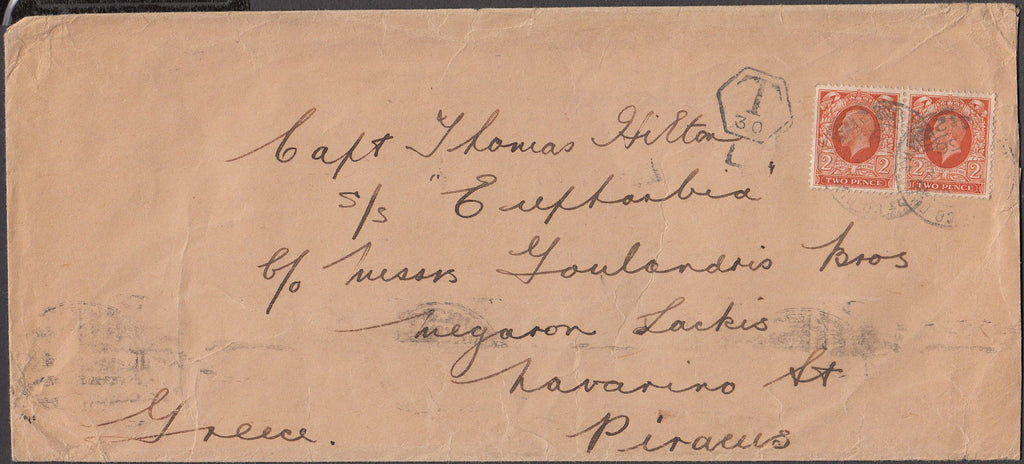 T
30
L
2 2
TWO PENCE
2 2
TWO PENCE
Capt Thomas Hilton
S/S "Euphorbia"
c/o Messrs Goulandris Bros
Megaron Lackis
Navarino St
Piraeus
Greece.